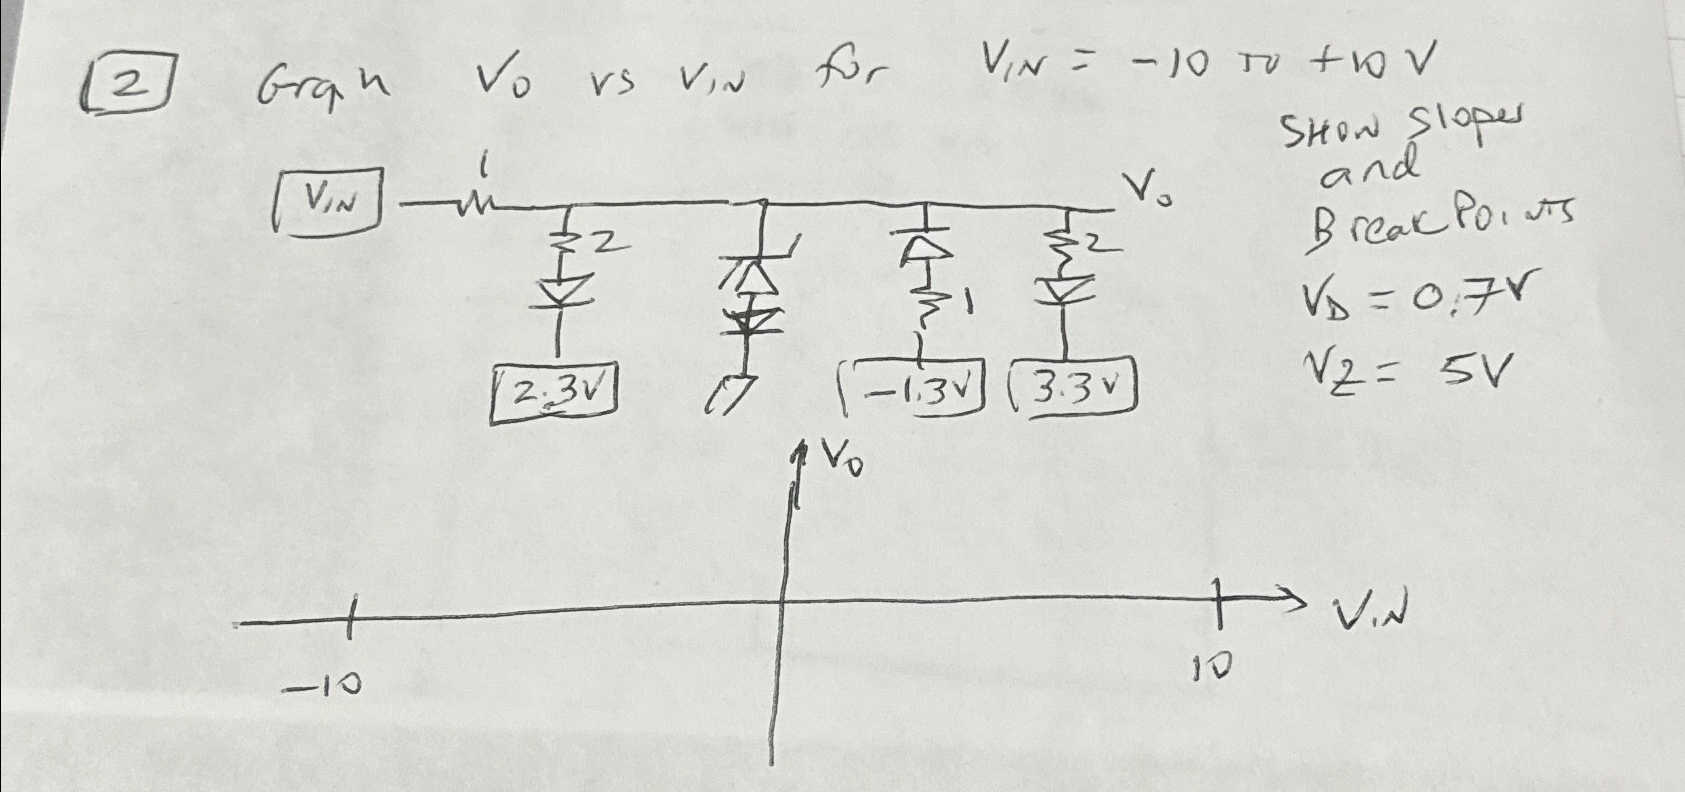 2 Graph Vo vs VIN for VIN = -10 TO +10 V
SHOW Slopes
and
Break Points
VD = 0.7V
VZ = 5V
VIN 1 Vo
2 1 2
2.3V -1.3V 3.3V
Vo
VIN
-10 10